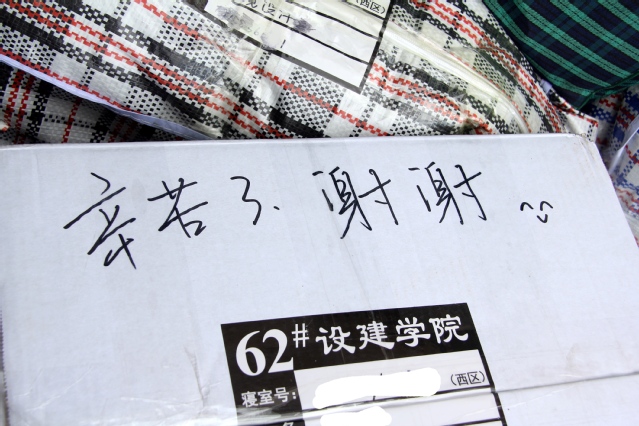 (西区)
辛苦了、谢谢
62# 设建学院
寝室号:
(西区)
名